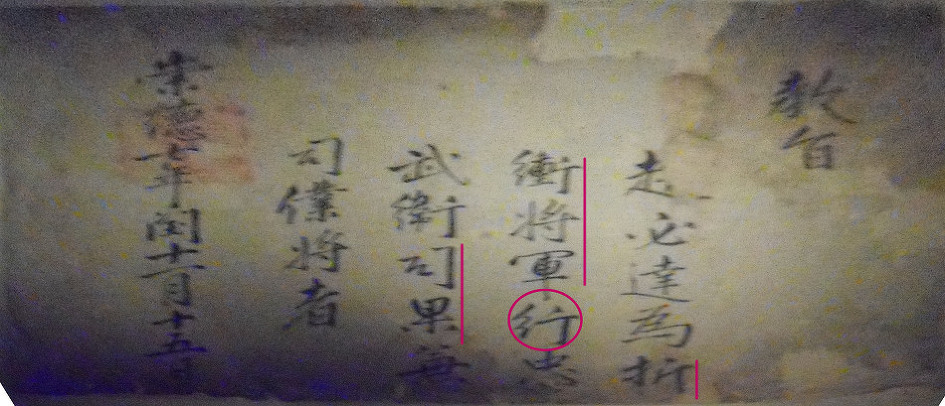 教旨
趙必達為折
衝將軍行忠
武衛司果兼
司僕將者
崇德七年閏十一月十五日